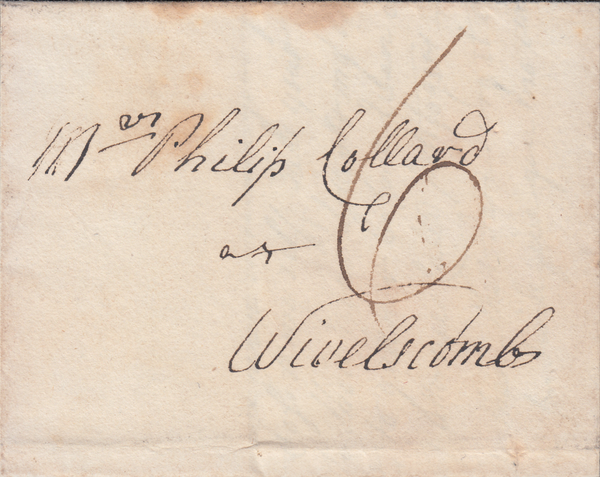 Mr Philip Collard
6
at
Wivelscomb